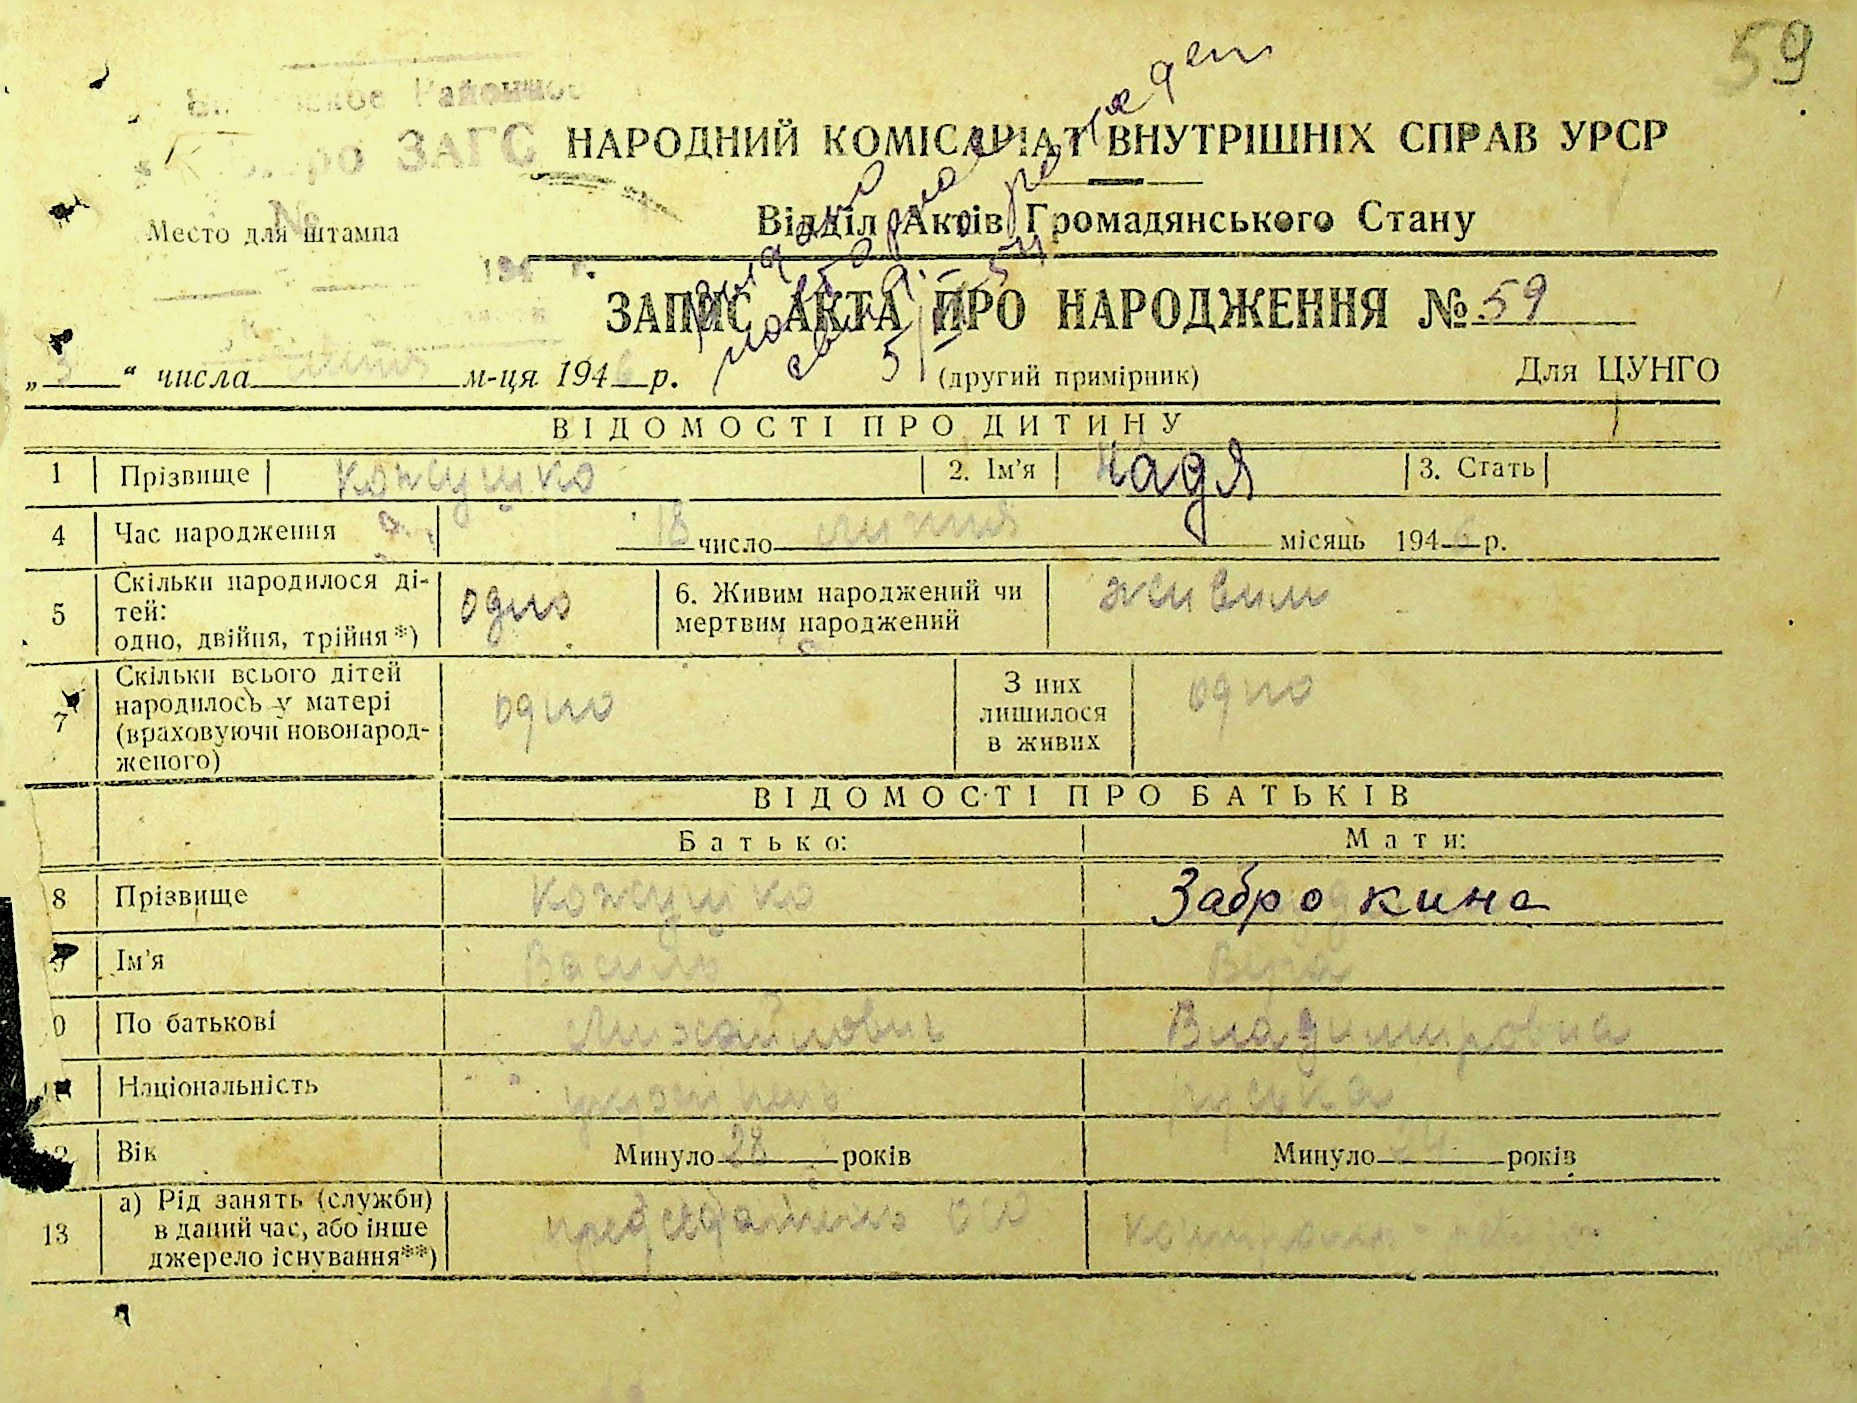 59
Районное
Бюро ЗАГС
НАРОДНИЙ КОМІСАРІАТ ВНУТРІШНІХ СПРАВ УРСР
Место для штампа
№
Відділ Актів Громадянського Стану
194 г.
ЗАПИС АКТА ПРО НАРОДЖЕННЯ № 59
„3“ числа м-ця 1946 р. (другий примірник) Для ЦУНГО
ВІДОМОСТІ ПРО ДИТИНУ
1 Прізвище Кожушко 2. Ім'я Надя 3. Стать
4 Час народження 18 число липня місяць 1946 р.
5 Скільки народилося ді-
тей:
одно, двійня, трійня*) одно 6. Живим народжений чи
мертвим народжений живим
7 Скільки всього дітей
народилось у матері
(враховуючи новонарод-
женого) одно З них
лишилося
в живих одно
ВІДОМОСТІ ПРО БАТЬКІВ
Батько: Мати:
8 Прізвище Кожушко Заброкина
9 Ім'я Василь Віра
0 По батькові Михайлович Владимировна
Національність українець руська
Вік Минуло 28 років Минуло років
13 а) Рід занять (служби)
в даний час, або інше
джерело існування**)